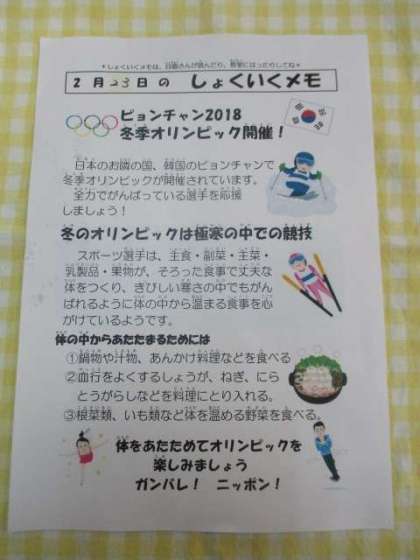 ＊しょくいくメモは、日直さんが読んだり、教室にはったりしてね＊
2 月 23 日 の しょくいくメモ
ピョンチャン2018
冬季オリンピック開催！
日本のお隣の国、韓国のピョンチャンで
冬季オリンピックが開催されています。
全力でがんばっている選手を応援
しましょう！
冬のオリンピックは極寒の中での競技
スポーツ選手は、主食・副菜・主菜・
乳製品・果物が、そろった食事で丈夫な
体をつくり、きびしい寒さの中でもがん
ばれるように体の中から温まる食事を心
がけているようです。
体の中からあたたまるためには
①鍋物や汁物、あんかけ料理などを食べる
②血行をよくするしょうが、ねぎ、にら
とうがらしなどを料理にとり入れる。
③根菜類、いも類など体を温める野菜を食べる。
体をあたためてオリンピックを
楽しみましょう
ガンバレ！ ニッポン！